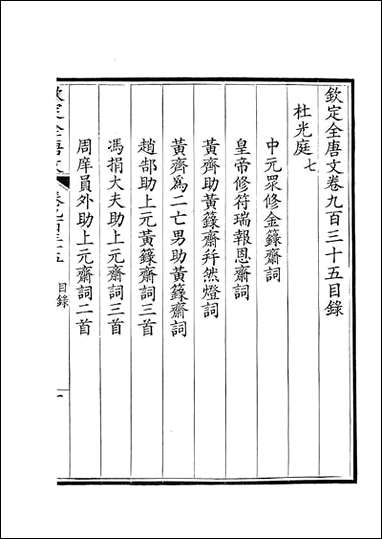 欽定全唐文卷九百三十五目錄
杜光庭七
中元眾修金籙齋詞
皇帝修符瑞報恩齋詞
黃齊助黃籙齋并然燈詞
黃齊為二亡男助黃籙齋詞
趙郜助上元黃籙齋詞三首
馮捐大夫助上元齋詞三首
周庠員外助上元齋詞二首
欽定全唐文
卷九百三十五
目錄
一